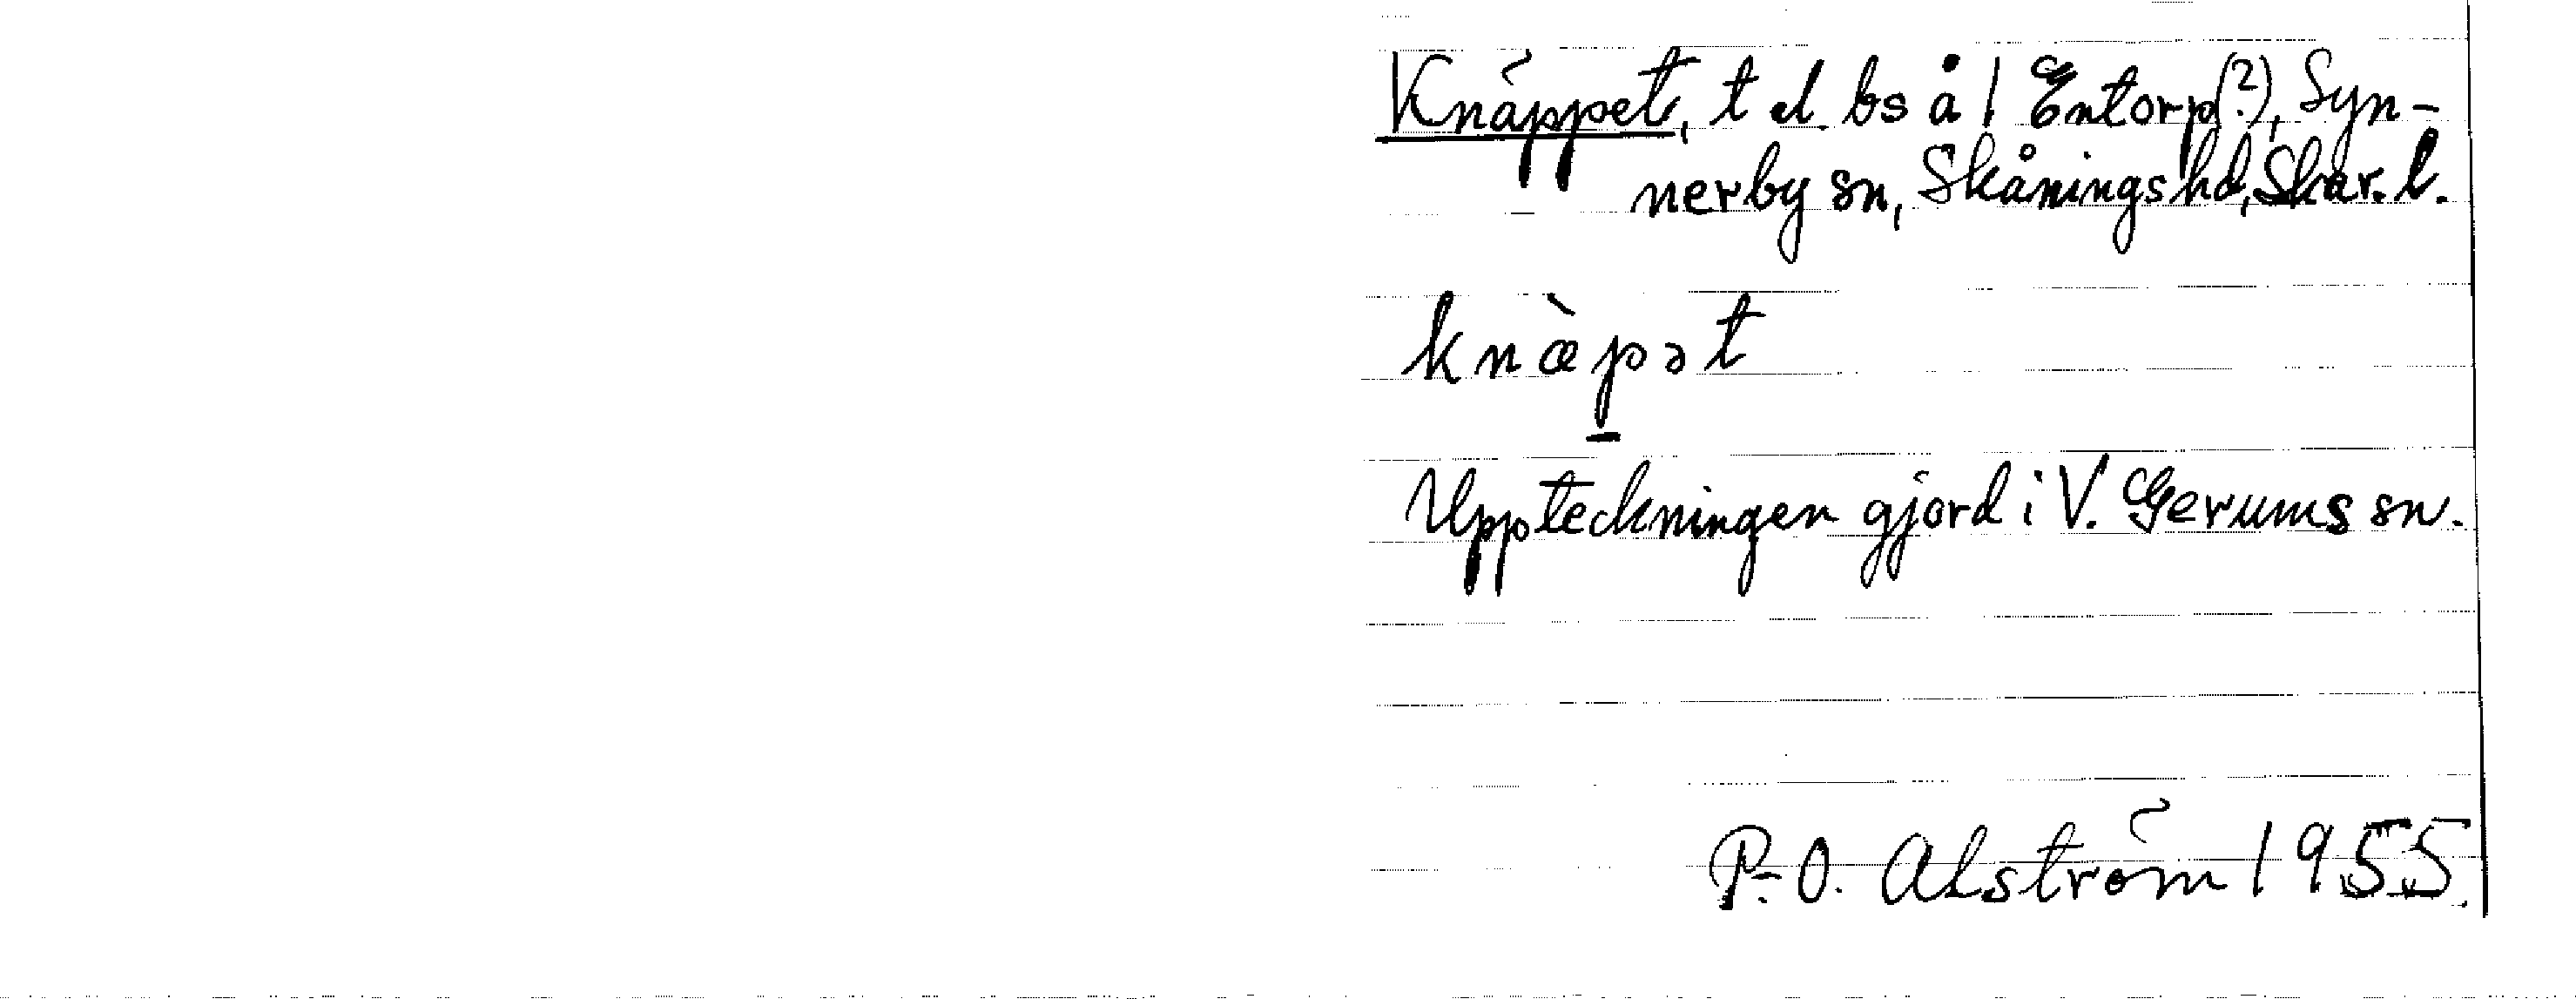 Knäppet, t el. bs å / Entorp(?), Syn-
nerby sn, Skånings hd, Skar. l.
knæ̀pət
Uppteckningen gjord i V. Gerums sn.
P.-O. Alström 1955.